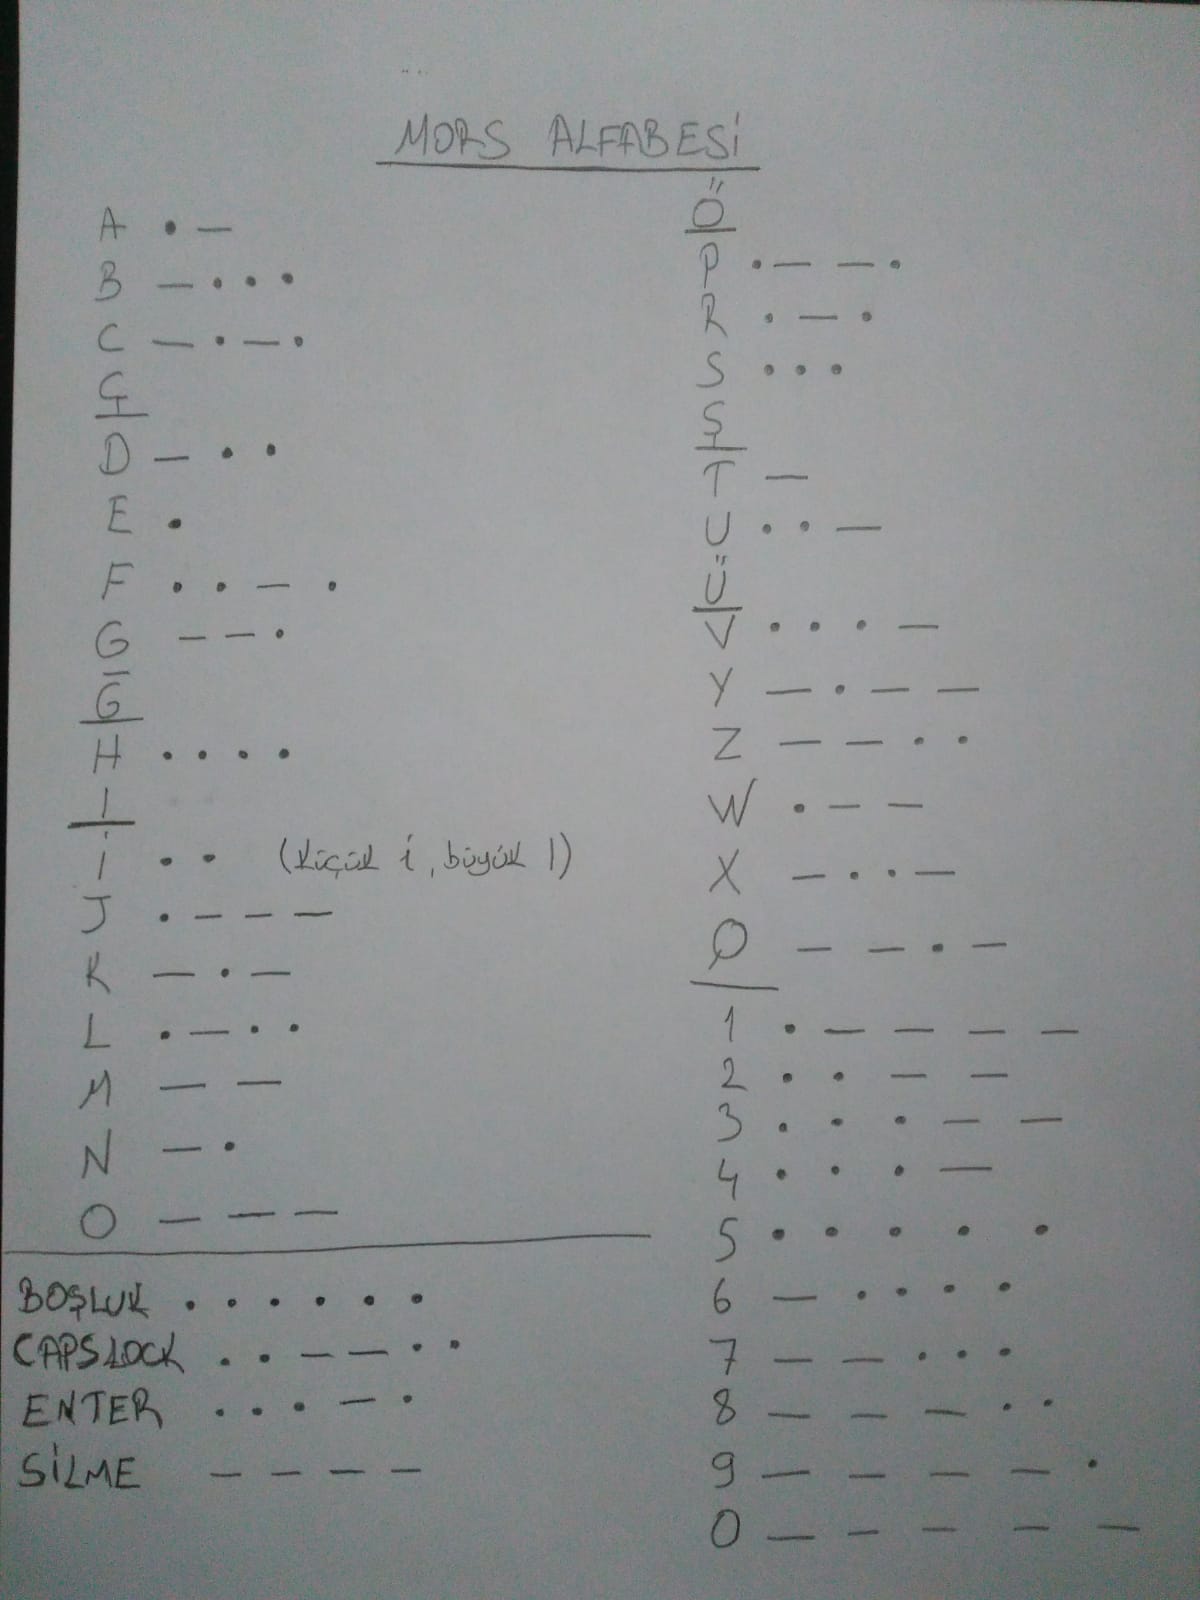 MORS ALFABESİ
A • —
B — • • •
C — • — •
Ç
D — • •
E •
F • • — •
G — — •
Ğ
H • • • •
I
İ • • (küçük i, büyük I)
J • — — —
K — • —
L • — • •
M — —
N — •
O — — —
BOŞLUK • • • • • •
CAPSLOCK • • — — • •
ENTER • • • — •
SİLME — — — —
Ö
P • — — •
R • — •
S • • •
Ş
T —
U • • —
Ü
V • • • —
Y — • — —
Z — — • •
W • — —
X — • • —
Q — — • —
1 • — — — —
2 • • — —
3 • • • — —
4 • • • —
5 • • • • •
6 — • • • •
7 — — • • •
8 — — — • •
9 — — — — •
0 — — — — —